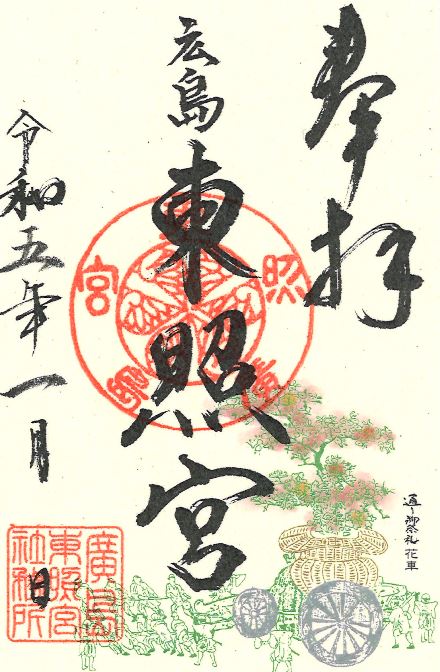 奉拝
広島
東照宮
令和五年一月
日
通り御祭礼 花車
廣島
東照宮
社務所